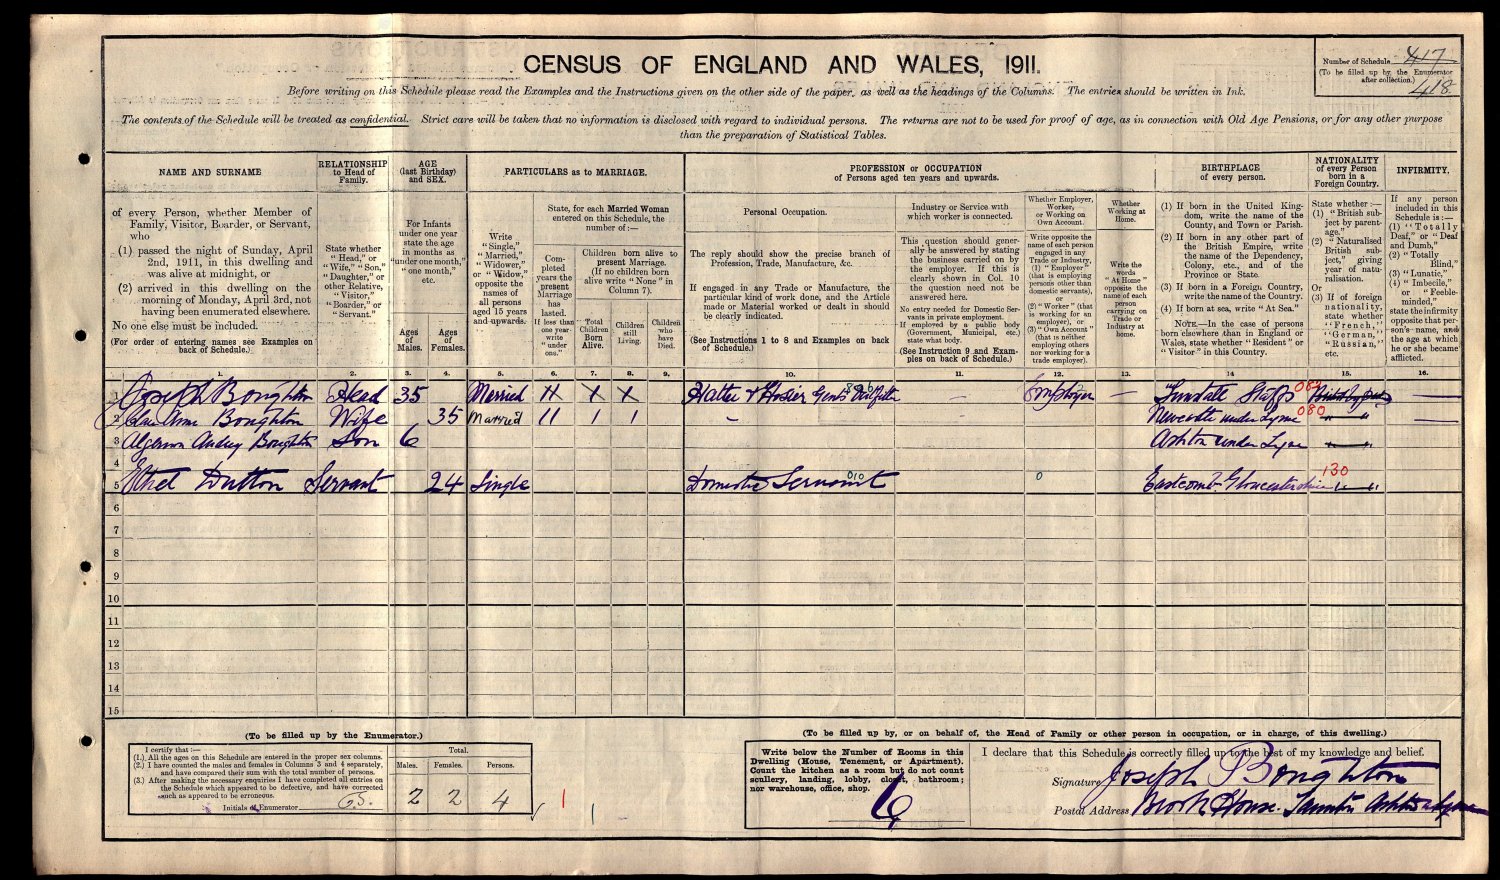 CENSUS OF ENGLAND AND WALES, 1911.
Number of Schedule 417
(To be filled up by the Enumerator after collection.) 418
Before writing on this Schedule please read the Examples and the Instructions given on the other side of the paper, as well as the headings of the Columns. The entries should be written in Ink.
The contents of the Schedule will be treated as confidential. Strict care will be taken that no information is disclosed with regard to individual persons. The returns are not to be used for proof of age, as in connection with Old Age Pensions, or for any other purpose
than the preparation of Statistical Tables.
NAME AND SURNAME
RELATIONSHIP to Head of Family.
AGE (last Birthday) and SEX.
PARTICULARS as to MARRIAGE.
PROFESSION or OCCUPATION of Persons aged ten years and upwards.
BIRTHPLACE of every person.
NATIONALITY of every Person born in a Foreign Country.
INFIRMITY.
of every Person, whether Member of
Family, Visitor, Boarder, or Servant,
who
(1) passed the night of Sunday, April
2nd, 1911, in this dwelling and
was alive at midnight, or
(2) arrived in this dwelling on the
morning of Monday, April 3rd, not
having been enumerated elsewhere.
No one else must be included.
(For order of entering names see Examples on
back of Schedule.)
State whether
"Head," or
"Wife," "Son,"
"Daughter," or
other Relative,
"Visitor,"
"Boarder," or
"Servant."
For Infants
under one year
state the age
in months as
"under one month,"
"one month,"
etc.
Ages of Males.
Ages of Females.
Write
"Single,"
"Married,"
"Widower,"
or "Widow,"
opposite the
names of
all persons
aged 15 years
and upwards.
State, for each Married Woman
entered on this Schedule, the
number of:—
Completed years the present Marriage has lasted. If less than one year write "under one."
Children born alive to
present Marriage.
(If no children born
alive write "None" in
Column 7).
Total Children Born Alive.
Children still Living.
Children who have Died.
Personal Occupation.
The reply should show the precise branch of
Profession, Trade, Manufacture, &c.
If engaged in any Trade or Manufacture, the
particular kind of work done, and the Article
made or Material worked or dealt in should
be clearly indicated.
(See Instructions 1 to 8 and Examples on back
of Schedule.)
Industry or Service with
which worker is connected.
This question should generally
be answered by stating
the business carried on by
the employer. If this is
clearly shown in Col. 10
the question need not be
answered here.
No entry needed for Domestic Servants
in private employment.
If employed by a public body
(Government, Municipal, etc.)
state what body.
(See Instruction 9 and Examples
on back of Schedule.)
Whether Employer,
Worker,
or Working on
Own Account.
Write opposite the
name of each person
engaged in any
Trade or Industry,
(1) "Employer"
(that is employing
persons other than
domestic servants),
or
(2) "Worker" (that
is working for an
employer), or
(3) "Own Account"
(that is neither
employing others
nor working for a
trade employer).
Whether
Working at
Home.
Write the
words
"At Home"
opposite the
name of each
person
carrying on
Trade or
Industry at
home.
(1) If born in the United Kingdom,
write the name of the
County, and Town or Parish.
(2) If born in any other part of
the British Empire, write
the name of the Dependency,
Colony, etc., and of the
Province or State.
(3) If born in a Foreign Country,
write the name of the Country.
(4) If born at sea, write "At Sea."
NOTE.—In the case of persons
born elsewhere than in England or
Wales, state whether "Resident" or
"Visitor" in this Country.
State whether :—
(1) "British subject
by parentage."
(2) "Naturalised
British subject,"
giving
year of naturalisation.
Or
(3) If of foreign
nationality,
state whether
"French,"
"German,"
"Russian,"
etc.
If any person
included in this
Schedule is :—
(1) "Totally
Deaf," or "Deaf
and Dumb,"
(2) "Totally
Blind,"
(3) "Lunatic,"
(4) "Imbecile,"
or "Feeble-
minded,"
state the infirmity
opposite that person's
name, and
the age at which
he or she became
afflicted.
1. 2. 3. 4. 5. 6. 7. 8. 9. 10. 11. 12. 13. 14 15. 16.
1 Joseph Boughton Head 35 Married Hatter & Hosier Gents Outfitter — Employer —
2 Ann Boughton Wife 35 Married 11 1 1 — Newcastle under Lyme 080 " "
3 Algernon Boughton Son 6 Ashton under Lyne
4
5 Ethel Dutton Servant 24 Single Domestic Servant 010 0 Eastcomb Gloucestershire 130 " "
6
7
8
9
10
11
12
13
14
15
(To be filled up by the Enumerator.)
I certify that :—
(1.) All the ages on this Schedule are entered in the proper sex columns.
(2.) I have counted the males and females in Columns 3 and 4 separately,
and have compared their sum with the total number of persons.
(3.) After making the necessary enquiries I have completed all entries on
the Schedule which appeared to be defective, and have corrected
such as appeared to be erroneous.
Initials of Enumerator
Total.
Males. Females. Persons.
2 2 4
1
(To be filled up by, or on behalf of, the Head of Family or other person in occupation, or in charge, of this dwelling.)
Write below the Number of Rooms in this
Dwelling (House, Tenement, or Apartment).
Count the kitchen as a room but do not count
scullery, landing, lobby, closet, bathroom;
nor warehouse, office, shop.
6
I declare that this Schedule is correctly filled up to the best of my knowledge and belief.
Signature Joseph Boughton
Postal Address Brook House. Taunton Ashton